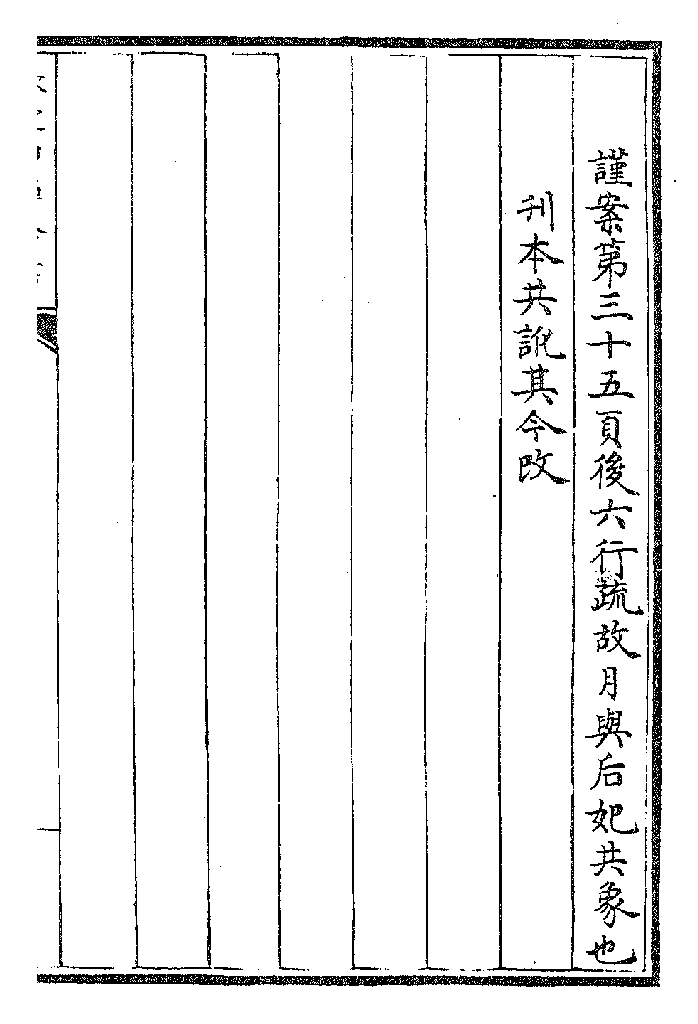 謹案第三十五頁後六行疏故月與后妃共象也
刊本共訛其今改